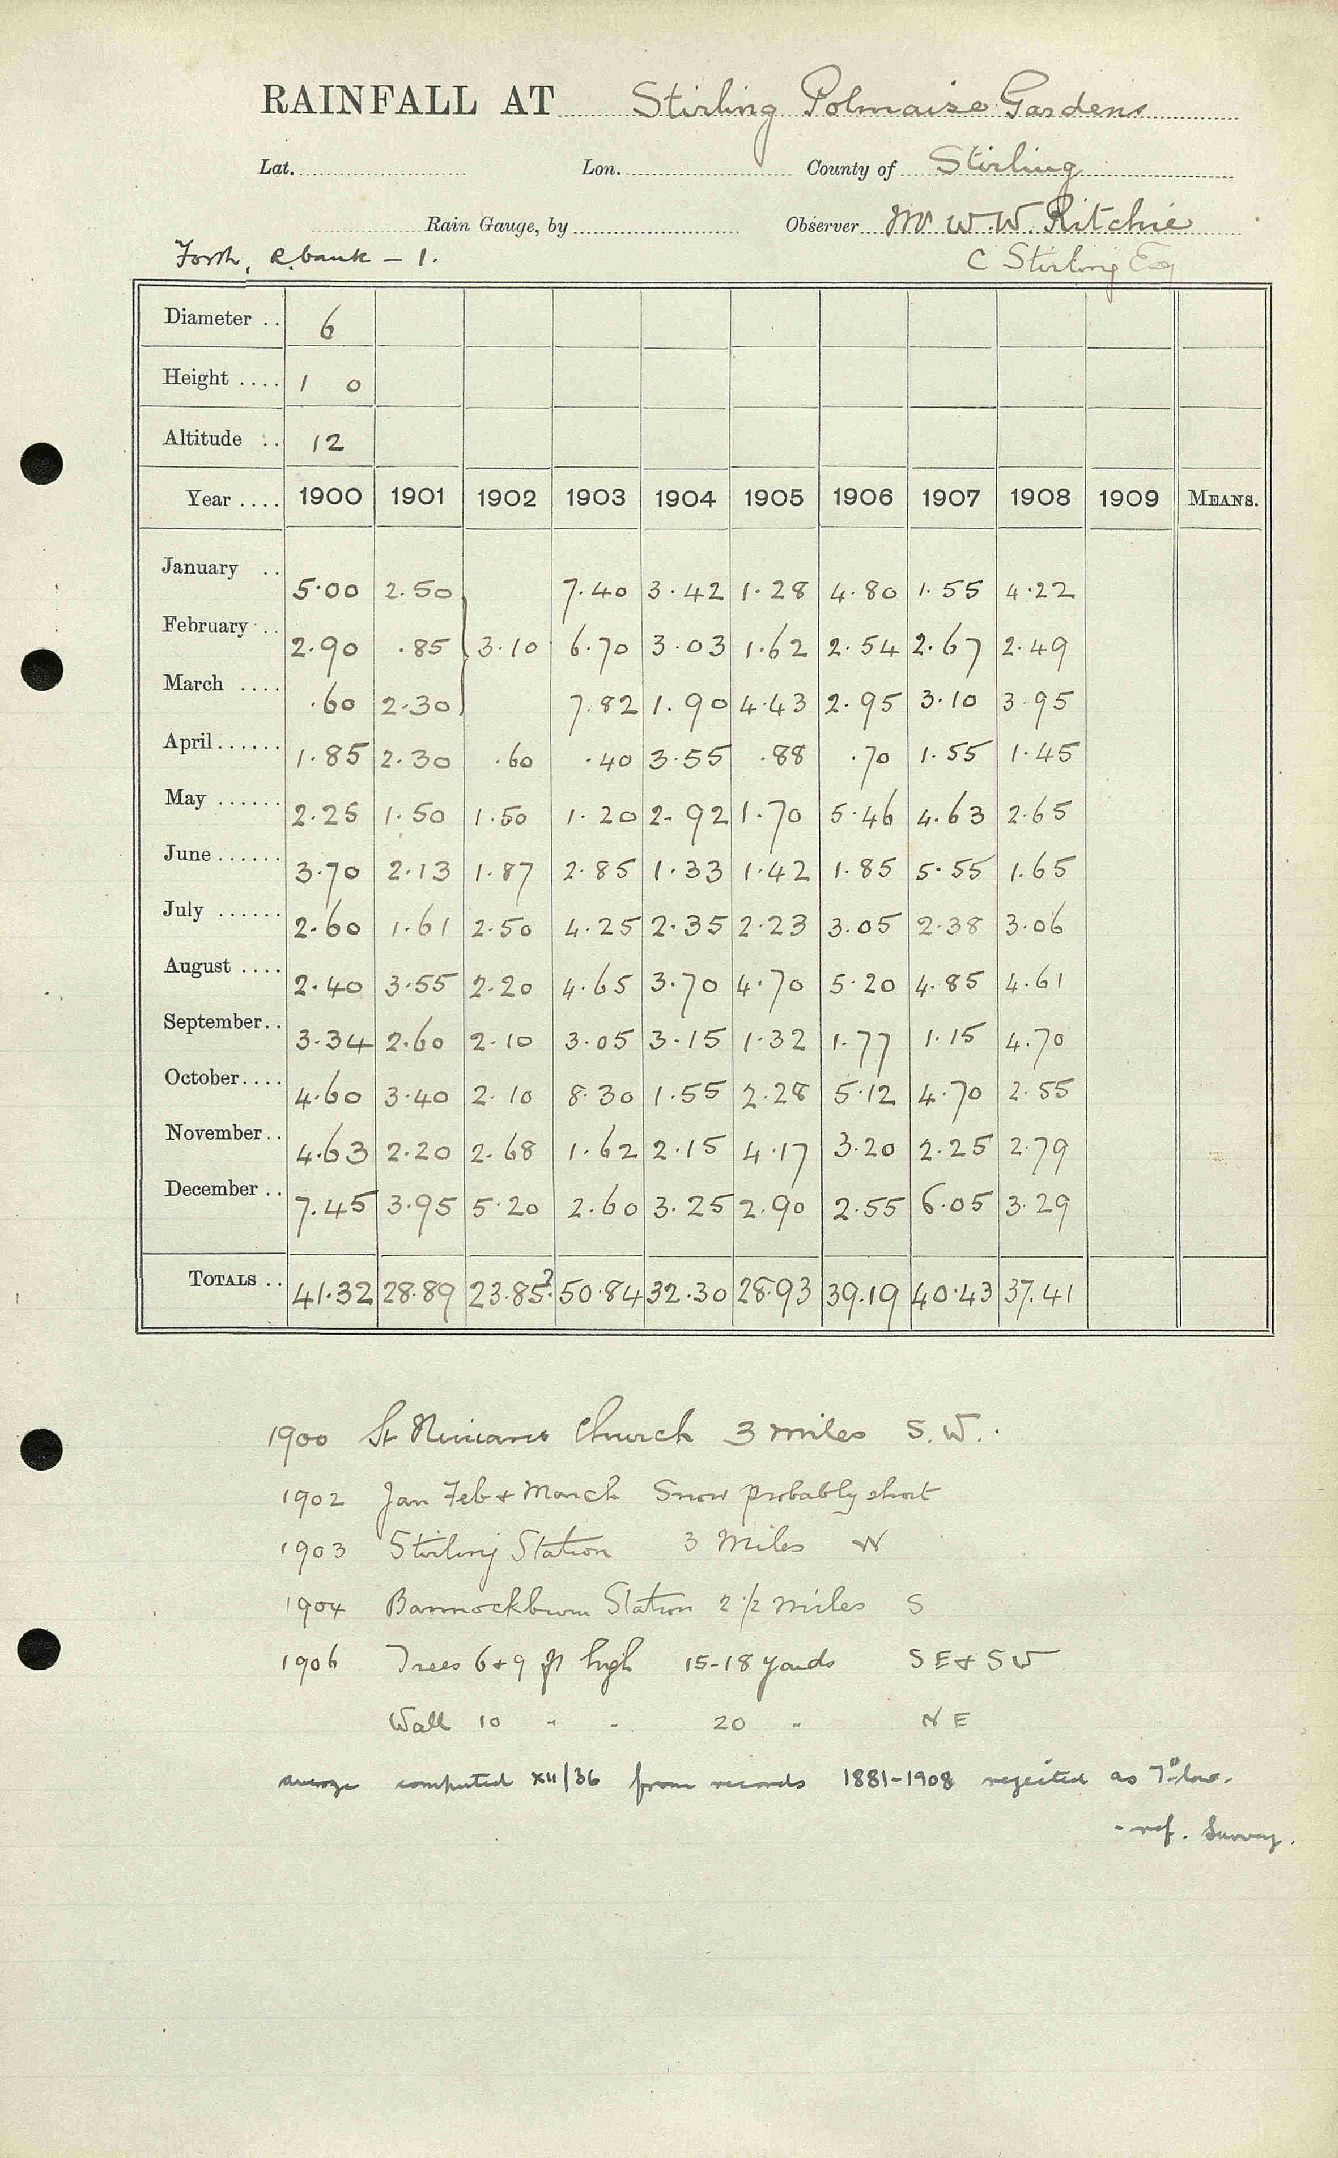 RAINFALL AT Stirling Polmaise Gardens
Lat. Lon. County of Stirling
Rain Gauge, by Observer Mr W. W. Ritchie
Forth, R. bank – 1. C Stirling Esq
Diameter .. 6
Height .... 1 0
Altitude .. 12
Year .... 1900 1901 1902 1903 1904 1905 1906 1907 1908 1909 MEANS.
January .. 5.00 2.50 7.40 3.42 1.28 4.80 1.55 4.22
February .. 2.90 .85 } 3.10 6.70 3.03 1.62 2.54 2.67 2.49
March .... .60 2.30 7.82 1.90 4.43 2.95 3.10 3.95
April...... 1.85 2.30 .60 .40 3.55 .88 .70 1.55 1.45
May ...... 2.25 1.50 1.50 1.20 2.92 1.70 5.46 4.63 2.65
June...... 3.70 2.13 1.87 2.85 1.33 1.42 1.85 5.55 1.65
July ...... 2.60 1.61 2.50 4.25 2.35 2.23 3.05 2.38 3.06
August .... 2.40 3.55 2.20 4.65 3.70 4.70 5.20 4.85 4.61
September.. 3.34 2.60 2.10 3.05 3.15 1.32 1.77 1.15 4.70
October.... 4.60 3.40 2.10 8.30 1.55 2.28 5.12 4.70 2.55
November.. 4.63 2.20 2.68 1.62 2.15 4.17 3.20 2.25 2.79
December .. 7.45 3.95 5.20 2.60 3.25 2.90 2.55 6.05 3.29
TOTALS .. 41.32 28.89 23.85? 50.84 32.30 28.93 39.19 40.43 37.41
1900 St Ninians Church 3 miles S.W.
1902 Jan Feb + March Snow probably short
1903 Stirling Station 3 Miles W
1904 Bannockburn Station 2 1/2 miles S
1906 Trees 6+9 ft high 15-18 yards SE + SW
Wall 10 " " 20 " NE
average computed XII/36 from records 1881-1908 rejected as 7% low.
- ref. Survey.